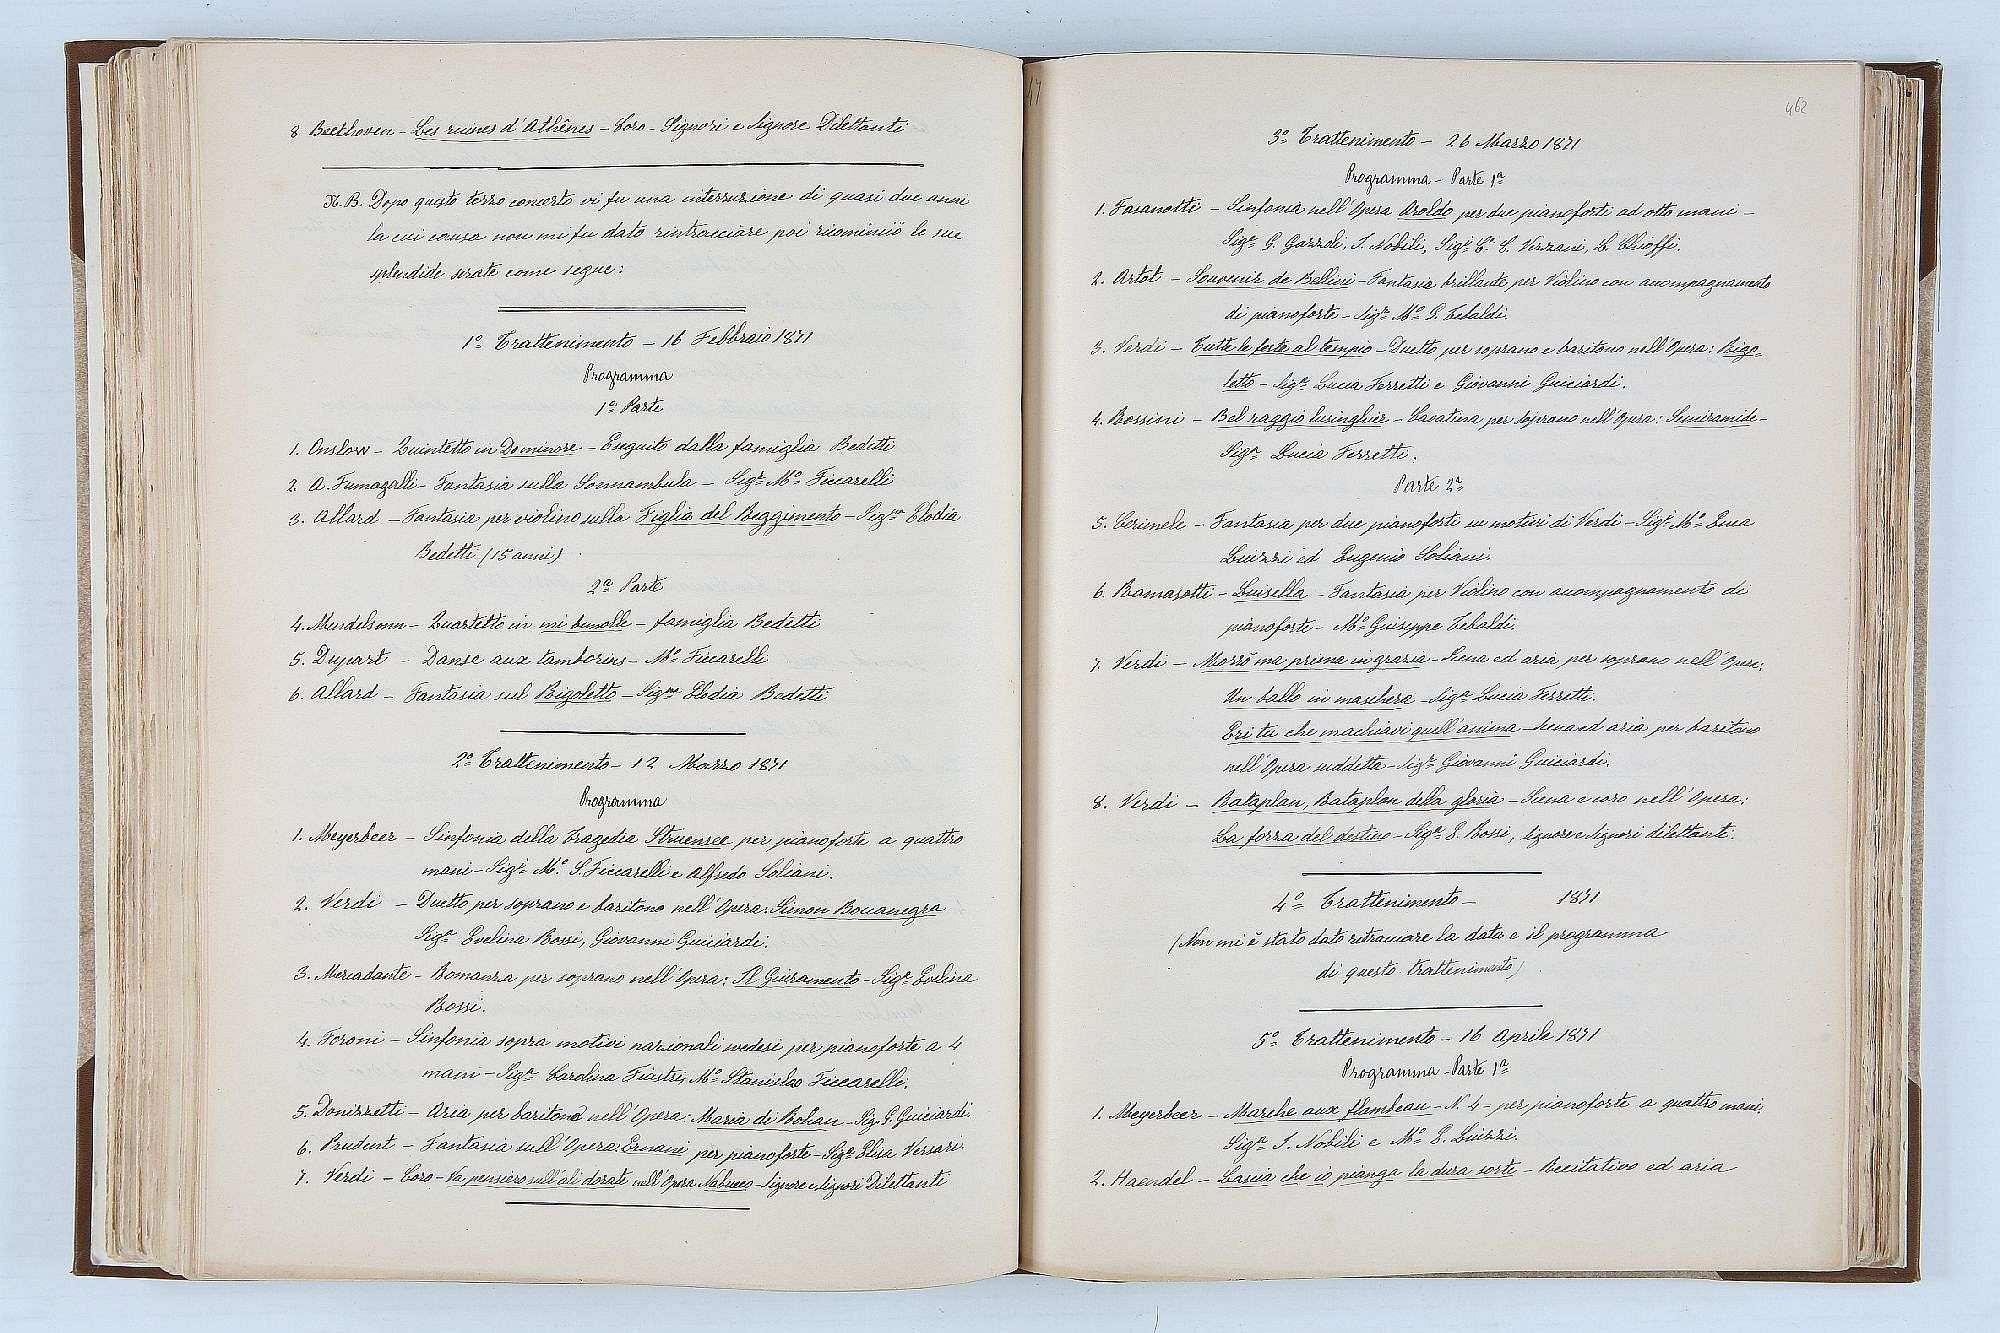 8 Beethoven – Les ruines d'Athênes – Coro – Signori e Signore Dilettanti
N.B. Dopo questo terzo concerto vi fu una interruzione di quasi due anni
la cui causa non mi fu dato rintracciare poi ricominciò le sue
splendide serate come segue:
1º Trattenimento – 16 Febbraio 1871
Programma
1ª Parte
1. Onslow – Quintetto in Do minore – Eseguito dalla famiglia Bedetti
2. A. Fumagalli – Fantasia sulla Sonnambula – Sigr Mº Ficcarelli
3. Allard – Fantasia per violino sulla Figlia del Reggimento – Signa Elodia
Bedetti (15 anni)
2ª Parte
4. Mendelsonn – Quartetto in mi bemolle – famiglia Bedetti
5. Dupart – Danse aux tamborins – Mº Ficcarelli
6. Allard – Fantasia sul Rigoletto – Signa Elodia Bedetti
2º Trattenimento – 12 Marzo 1871
Programma
1. Meyerbeer – Sinfonia della Tragedia Struensee per pianoforte a quattro
mani – Sigri Mº S. Ficcarelli e Alfredo Soliani.
2. Verdi – Duetto per soprano e baritono nell'Opera: Simon Bocanegra
Sigra Evelina Rossi, Giovanni Guiciardi.
3. Mercadante – Romanza per soprano nell'Opera: Il Giuramento – Sigra Evelina
Rossi.
4. Foroni – Sinfonia sopra motivi nazionali svedesi per pianoforte a 4
mani – Sigra Carolina Fiastri, Mº Stanislao Ficcarelli.
5. Donizzetti – Aria per baritono nell'Opera: Maria di Rohan – Sig. G. Guiciardi.
6. Prudent – Fantasia sull'Opera: Ernani per pianoforte – Sigra Elisa Versari.
7. Verdi – Coro – Va, pensiero sull'ali dorate nell'Opera Nabucco – Signore e Signori Dilettanti
462
3º Trattenimento – 26 Marzo 1871
Programma – Parte 1ª
1. Fasanotti – Sinfonia nell'Opera Aroldo per due pianoforti ad otto mani –
Sigre G. Gazzoli, I. Nobili, Sigri C. Vizzani, L. Chioffi.
2. Artot – Souvenir de Bellini – Fantasia brillante per Violino con accompagnamento
di pianoforte – Sigr Mº G. Tebaldi.
3. Verdi – Tutte le feste al tempio – Duetto per soprano e baritono nell'Opera: Rigo-
letto – Sigra Lucia Ferretti e Giovanni Guiciardi.
4. Rossini – Bel raggio lusinghier – Cavatina per soprano nell'Opera: Semiramide –
Sigra Lucia Ferretti.
Parte 2ª
5. Cerimele – Fantasia per due pianoforti su motivi di Verdi – Sigri Mº Enea
Luizzi ed Eugenio Soliani.
6. Bamasotti – Luisella – Fantasia per Violino con accompagnamento di
pianoforte – Mº Giuseppe Tebaldi.
7. Verdi – Morrò ma prima in grazia – Scena ed aria per soprano nell'Opera:
Un ballo in maschera – Sigra Lucia Ferretti.
Eri tu che machiavi quell'anima – Scena ed aria per baritono
nell'Opera suddetta – Sigr Giovanni Guiciardi.
8. Verdi – Rataplan, Rataplan della gloria – Scena e coro nell'Opera:
La forza del destino – Sigra E. Rossi, Signore e Signori dilettanti.
4º Trattenimento – 1871
(Non mi è stato dato ritracciare la data e il programma
di questo trattenimento)
5º Trattenimento – 16 Aprile 1871
Programma – Parte 1ª
1. Meyerbeer – Marche aux flambeau – N. 4 – per pianoforte a quattro mani.
Sigra I. Nobili e Mº E. Luizzi.
2. Haendel – Lascia che io pianga la dura sorte – Recitativo ed aria